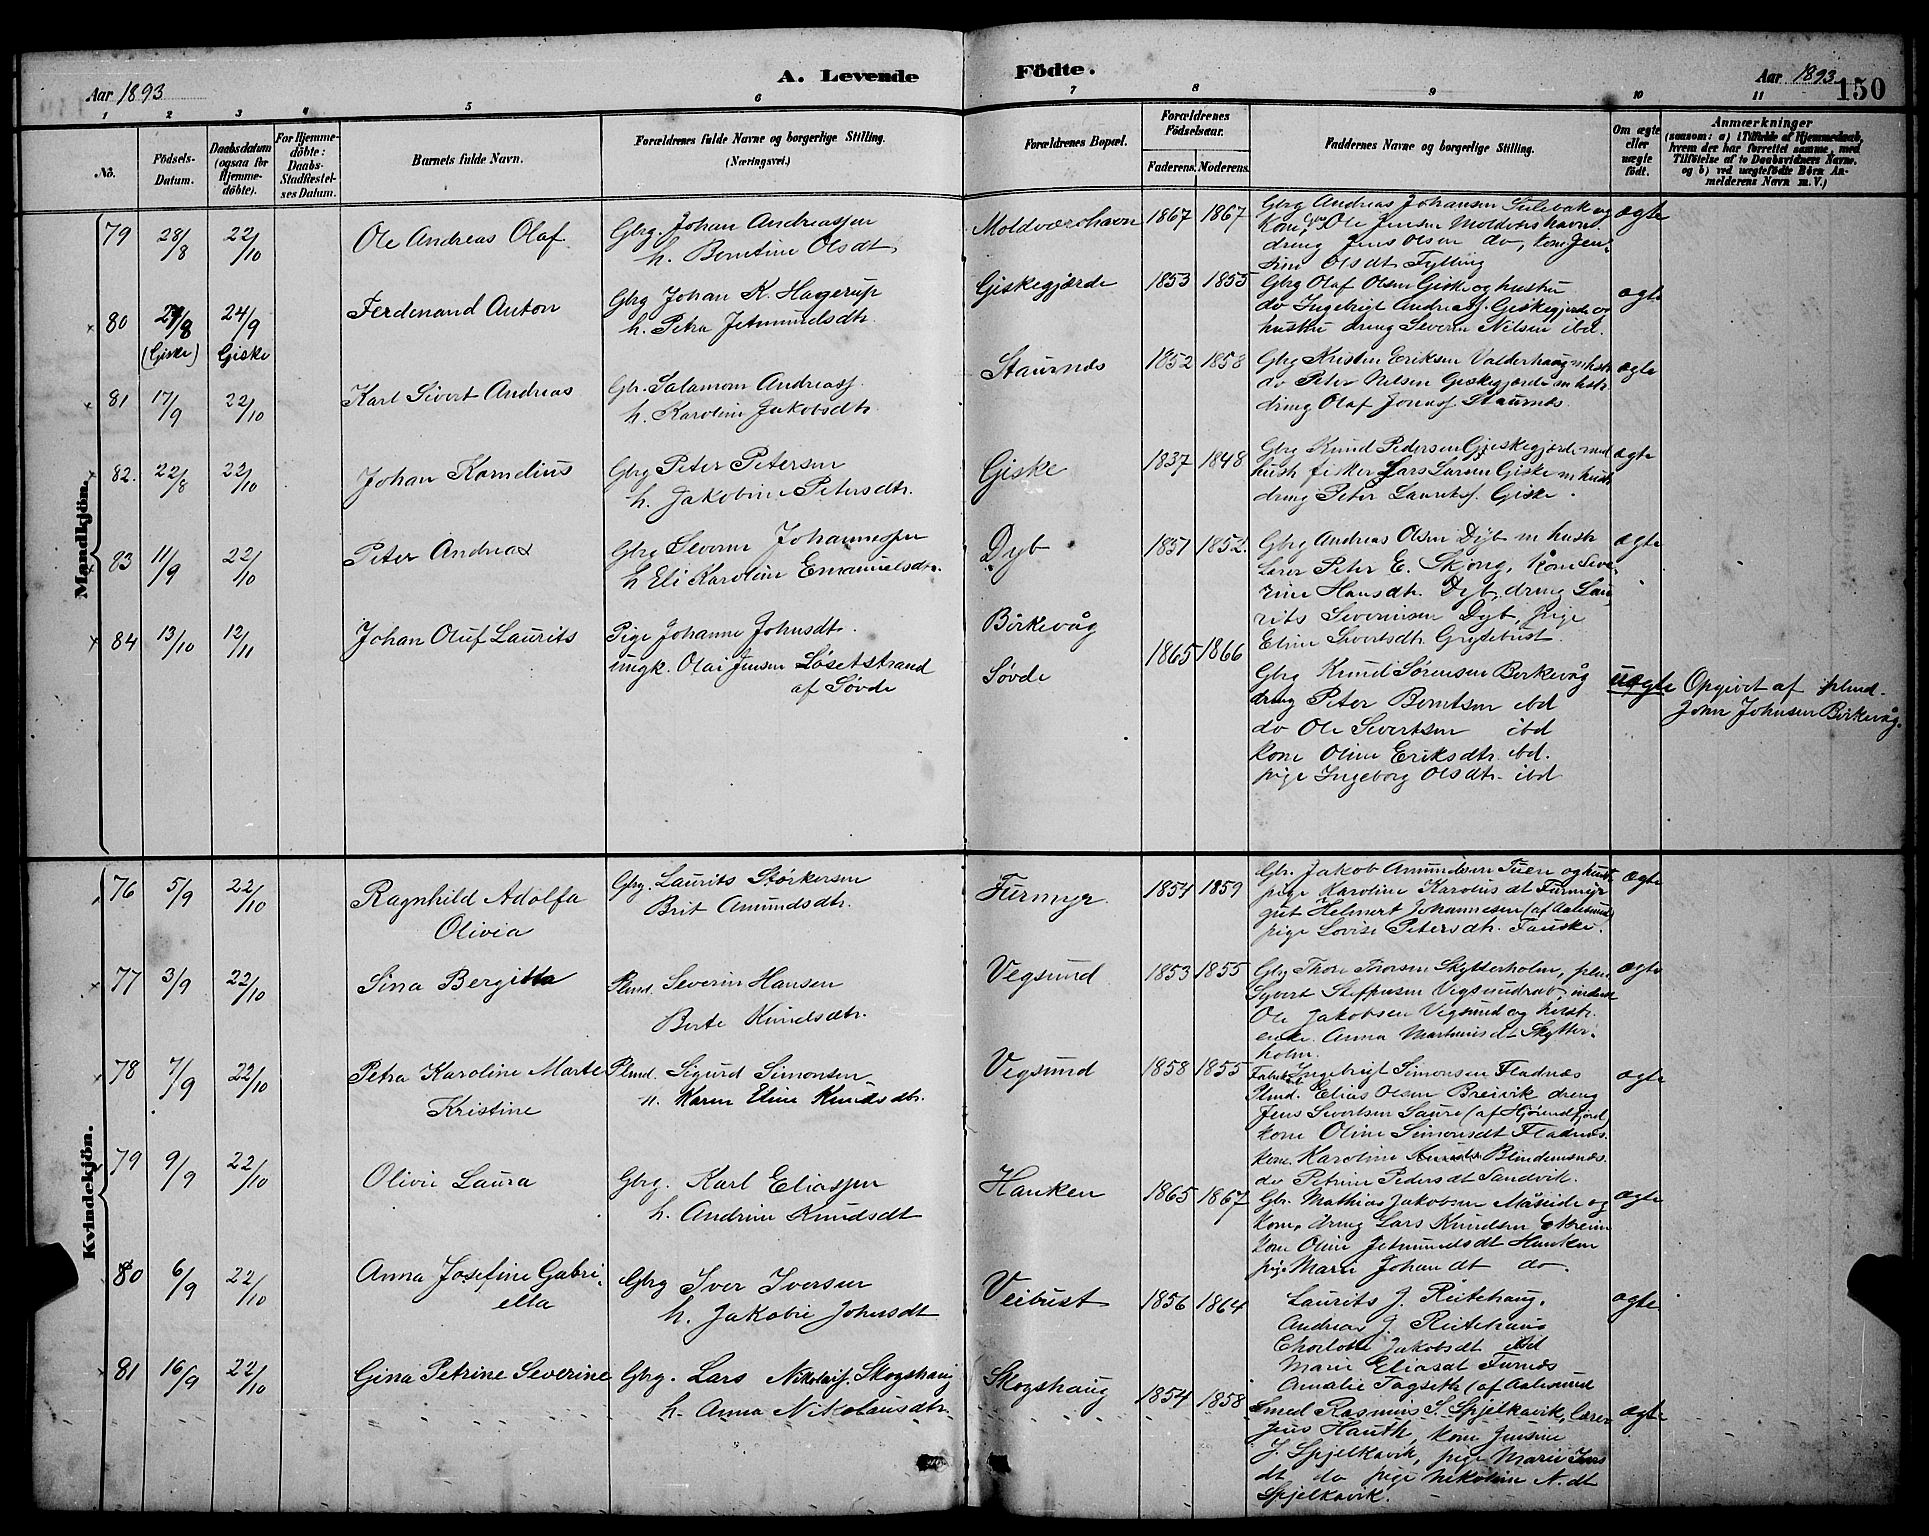 A. Levende Födte.
Aar 1893
Aar 1893
150
1 2 3 4 5 6 7 8 9 10 11
No.
Födsels-Datum.
Daabsdatum (ogsaa for Hjemmedöbte).
For Hjemmedöbte: Daabs-Stadfæstelses Datum.
Barnets fulde Navn.
Forældrenes fulde Navne og borgerlige Stilling. (Næringsvei.)
Forældrenes Bopæl.
Forældrenes Födselsaar.
Faderens. Moderens.
Faddernes Navne og borgerlige Stilling.
Om ægte eller uægte födt.
Anmærkninger
(saasom: a) i Tilfælde af Hjemmedaab, hvem der har forrettet samme, med Tilföielse af to Daabsvidners Navne, og b) ved uægtefödte Börn Anmelderens Navn m. V.)
Mandkjön.
79 28/8 22/10 Ole Andreas Olaf
Gbrg. Johan Andreassen
h. Berntine Olsdt.
Moldværshavn 1867 1867
Gbrg Andreas Johansen Tulebak og
kone, Gbr Ole Jensen Moldværshavn
dreng Jens Olsen do, kone Jen-
sine Olsdt Fylling
ægte
80 29/8 24/9 Ferdenand Anton
(Giske) Giske
Gbrg Johan K. Hagerup
h. Petra Jetmundsdtr.
Giskegjærde 1853 1855
Gbrg Olaf Olsen Giske og hustru
do Ingebrigt Andreass. Giskegjerde og
hustru dreng Severin Nilsen ibd.
ægte
81 17/9 22/10 Karl Sivert Andreas
Gbr. Salamon Andreass.
h. Karoline Jakobsdtr.
Staurnes 1852 1858
Gbrg Kristen Eriksen Valderhaug m hustr
do Peter Nilsen Giskegjerde m hustr
dreng Olaf Jonass. Staurnes
ægte
82. 22/8 22/10 Johan Kornelius
Gbrg Peter Petersen
h. Jakobine Petersdtr.
Giske 1837 1848
Gbrg Knud Pedersen Gjeskegjerde med
hustr fisker Lars Larsen Giske m hustr
dreng Peter Lauritss. Giske.
ægte
83 11/9 22/10 Peter Andreas
Gbrg Severin Johannessen
h Eli Karoline Emanuelsdtr.
Dyb 1851 1852.
Gbrg Andreas Olsen Dyb m hustr
Lærer Peter E. Skong, kone Seve-
rine Hansdtr. Dyb, dreng Lau-
rits Severinsen Dyb, pige
Eline Sivertsdtr Grytebust.
ægte
84 13/10 12/11 Johan Oluf Laurits
Pige Johanne Johnsdtr.
ungk. Olai Jensen Løsetstrand
af Søvde
Birkevåg
Søvde
1865 1866
Gbrg Knud Sørensen Berkevåg
dreng Peter Berntsen ibd
do Ole Sivertsen ibd
kone Oline Eriksdtr. ibd.
pige Ingeborg Olsdtr. ibd
uægte
Opgivet af plmd.
John Johnsen Birkevåg.
Kvindekjön.
76 5/9 22/10 Ragnhild Adolfa
Olivia
Gbrg. Laurits Størkersen
Brit Amundsdtr.
Furmyr. 1854 1859
Gbr. Jakob Amundsen Tuen og hustr
pige Karoline Karolusdt Furmyr
gut Helmert Johannesen (af Aalesund)
pige Lovise Petersdtr. Fauske.
ægte
77 3/9 22/10 Sina Bergitta
Plmd. Severin Hansen
Berte Knudsdtr.
Vegsund 1853 1855
Gbrg Thore Thorsen Skytterholm, plm
Syvert Steffensen Vegsundrab,
Ole Jakobsen Vegsund og hustr.
enke. Anna Martinusdt Skytter-
holm.
ægte
78 7/9 22/10 Petra Karoline Marte
Kristine
Plmd. Sigurd Simonsen
h. Karen Eline Knudsdtr.
Vegsund 1858 1855
Ingebrigt Simonsen Fladnæs
Plmd. Elias Olsen Breivik dreng
Jens Sivertsen Saure (af Hjørendfjord)
kone Oline Simonsdt Fladnæs.
kone. Karoline Blindemsnæs.
do Petrine Pedersdt Sandvik.
ægte
79 9/9 22/10 Olivie Laura
Gbrg. Karl Eliassen
h. Andrine Knudsdt
Hanken 1865 1867
Gbr. Mathias Jakobsen Måseide og
kone, dreng Lars Knudsen
kone Oline Jetmundsdt Hanken
pige Marie Johandt do.
ægte
80 6/9 22/10 Anna Josefine Gabri-
ella
Gbrg Iver Iversen
h. Jakobie Johnsdt
Veibust 1856 1864
Laurits J. Reitehaug,
Andreas J. Reitehaug
Charlotte Jakobsdt ibd
Marie Eliasdt Furnæs
Amalie Tagseth (af Aalesund
ægte
81 16/9 22/10 Gina Petrine Severine
Gbrg. Lars Nikolaiss. Skogshaug
h. Anna Nikolausdtr.
Skogshaug 1854 1858
Smed Rasmus S. Spjelkavik, lærer
Jens Hauth, kone Jensine
J. Spjelkavik, pige Marie Jens
dt do pige Nikoline N.dt
Spjelkavik.
ægte